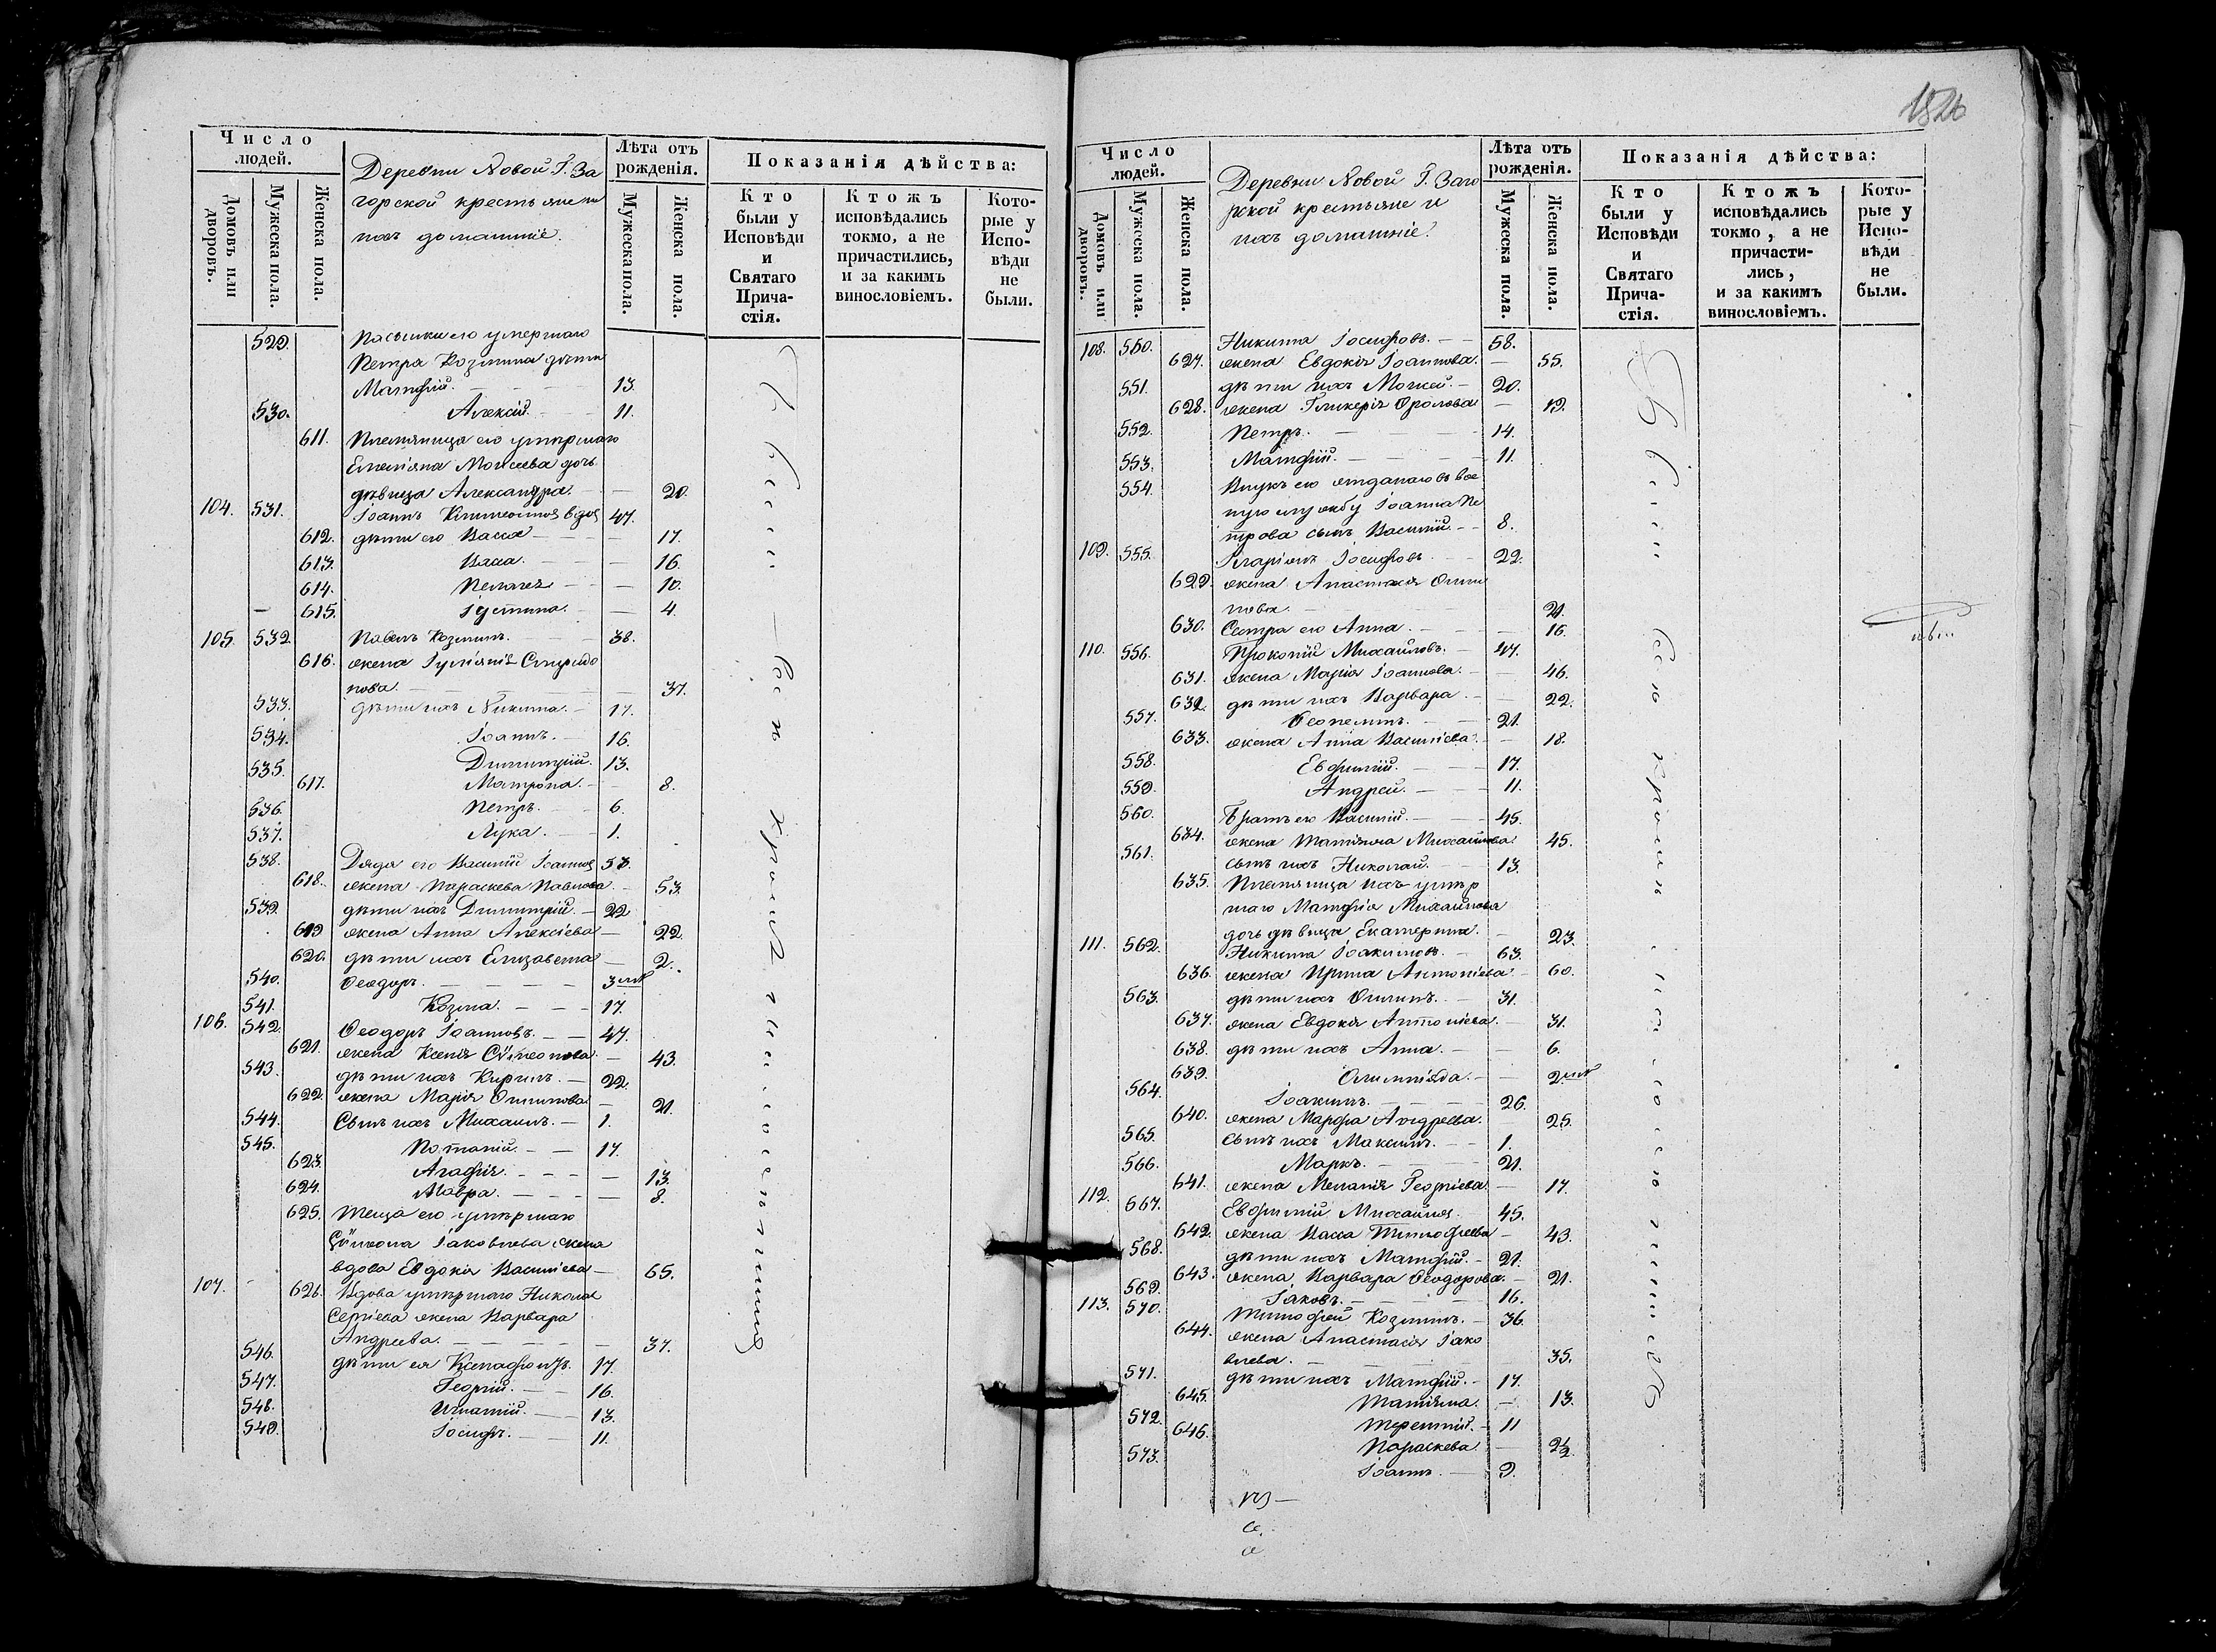 1826
Число людей.
Домовъ или дворовъ.
Мужеска пола.
Женска пола.
Деревни Новой Г. За
горской крестьяне и
ихъ домашніе.
Лѣта отъ рожденія.
Мужеска пола.
Женска пола.
Показанія дѣйства:
Кто были у Исповѣди и Святаго Причастія.
Ктожъ исповѣдались токмо, а не причастились, и за какимъ винословіемъ.
Которые у Исповѣди не были.
529. Пасынки его умершаго
Петра Козмина дѣти
Матфій. 13.
530. Алексій. 11.
611. Племянница его умершаго
Емеліана Моисеева дочь
дѣвица Александра. 20.
104. 531. Іоаннъ Климентовъ вдовъ 47.
612. дѣти его Васса 17.
613. Васса. 16.
614. Пелагея 10.
615. Іустина. 4.
105. 532. Павелъ Козминъ. 38.
616. жена Іуліанія Спиридо
нова. 37.
533. дѣти ихъ Никита. 17.
534. Іоаннъ. 16.
535. Димитрій. 13.
617. Матрона. 8.
536. Петръ. 6.
537. Лука. 1.
538. Дядя его Василій Іоанновъ 53.
618. жена Параскева Павлова 53.
539. дѣти ихъ Димитрій. 22
619 жена Анна Алексіева 22.
620. дѣти ихъ Елизавета 2.
540. Ѳеодоръ. 3 мѣ
541. Козма. 17.
106. 542. Ѳеодоръ Іоанновъ. 47.
621. жена Ксенія Сѵмеонова. 43.
543. дѣти ихъ Кирилъ. 22.
622. жена Марія Филипова 21.
544. Сынъ ихъ Михаилъ. 1.
545. Потапій. 17.
623. Агафія. 13.
624. Мавра. 8.
625. Теща его умершаго
Сѵмеона Іаковлева жена
вдова Евдокія Василіева 65.
107. 626. Вдова умершаго Николая
Сергіева жена Варвара
Андреева. 37.
546. дѣти ея Ксенофонтъ. 17.
547. Георгій. 16.
548. Игнатій. 13.
549. Іосифъ. 11.
Число людей.
Домовъ или дворовъ.
Мужеска пола.
Женска пола.
Деревни Новой Г. Заго
рской крестьяне и
ихъ домашніе.
Лѣта отъ рожденія.
Мужеска пола.
Женска пола.
Показанія дѣйства:
Кто были у Исповѣди и Святаго Причастія.
Ктожъ исповѣдались токмо, а не причастились, и за какимъ винословіемъ.
Которые у Исповѣди не были.
108. 550. Никита Іосифовъ. 58.
627. жена Евдокія Іоаннова. 55.
551. дѣти ихъ Моисей. 20.
628. жена Гликерія Фролова 19.
552. Петръ. 14.
553. Матфій. 11.
554. Внукъ его отданаго въ вое
нную службу Іоанна Пе
трова сынъ Василій. 8.
109. 555. Иларіонъ Іосифовъ 22.
629. жена Анастасія Фили
пова. 21.
630. Сестра его Анна. 16.
110. 556. Прокопій Михаиловъ. 47.
631. жена Марія Іоаннова. 46.
632. дѣти ихъ Варвара 22.
557. Ѳеопемптъ. 21.
633. жена Анна Василіева. 18.
558. Евфимій. 17.
559. Андрей. 11.
560. Братъ его Василій. 45.
634. жена Татіана Михаилова 45.
561. сынъ ихъ Николай. 13.
635. Племяница ихъ умер
шаго Матфія Михаилова
дочь дѣвица Екатерина. 23.
111. 562. Никита Іоакимовъ. 63.
636. жена Ирина Антоніева 60.
563. дѣти ихъ Филипъ. 31.
637. жена Евдокія Антоніева. 31.
638. дѣти ихъ Анна. 6.
639. Олимпіада. 2 мѣ
564. Іоакимъ. 26.
640. жена Марфа Андреева. 25.
565. сынъ ихъ Максимъ. 1.
566. Маркъ. 21.
641. жена Меланія Георгіева. 17.
112. 567. Евфимій Михаиловъ. 45.
642. жена Васса Тимофеева 43.
568. дѣти ихъ Матфій. 21.
643. жена Варвара Ѳеодорова. 21.
569. Іаковъ. 16.
113. 570. Тимофей Козминъ. 36.
644. жена Анастасія Іако
влева. 35.
571. дѣти ихъ Матфій. 17.
645. Татіана. 13.
572. Терентій. 11
646. Параскева. 2½.
573. Іоаннъ. 9.